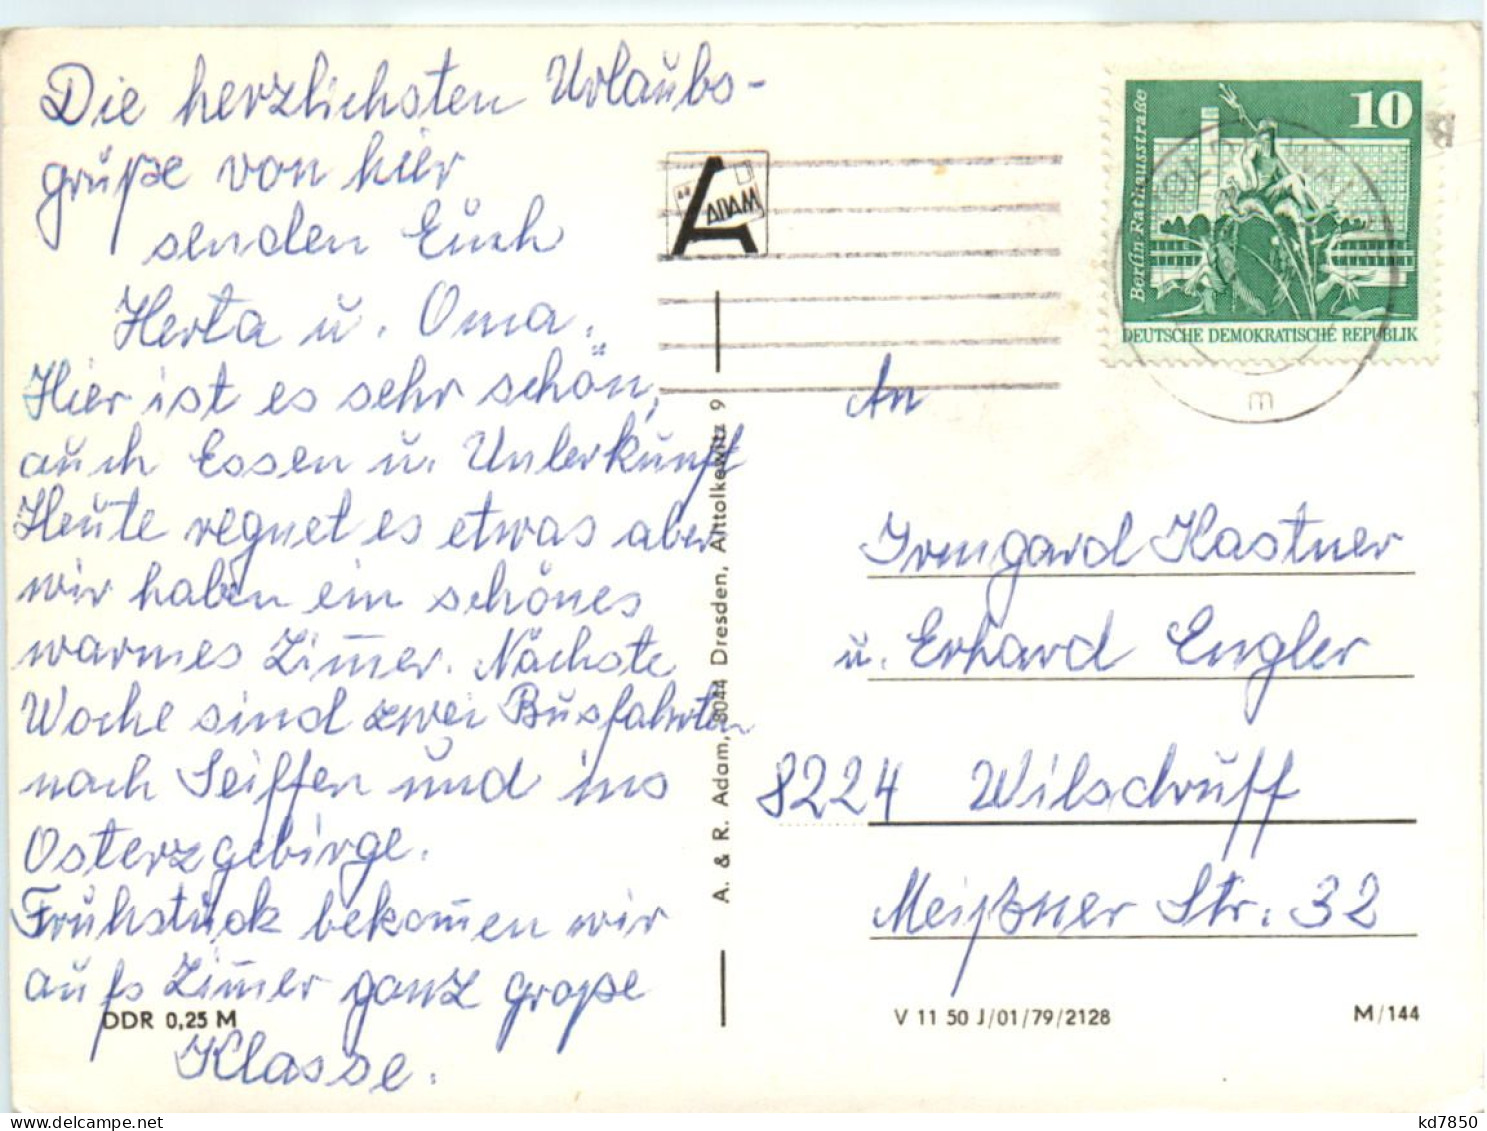 Die herzlichsten Urlaubs-
grüße von hier
senden Euch
Herta u. Oma.
Hier ist es sehr schön,
auch Essen u. Unterkunft
Heute regnet es etwas aber
wir haben ein schönes
warmes Zim̅er. Nächste
Woche sind zwei Busfahrten
nach Seiffen und ins
Osterzgebirge.
Frühstück bekom̅en wir
aufs Zim̅er ganz große
Klasse.
DDR 0,25 M
A. & R. Adam, 8044 Dresden, Alttolkewitz 9
A
ADAM
10
Berlin Rathausstraße
DEUTSCHE DEMOKRATISCHE REPUBLIK
m
An
Irmgard Kastner
u. Erhard Engler
8224 Wilsdruff
Meißner Str. 32
V 11 50 J/01/79/2128
M/144
kd7850